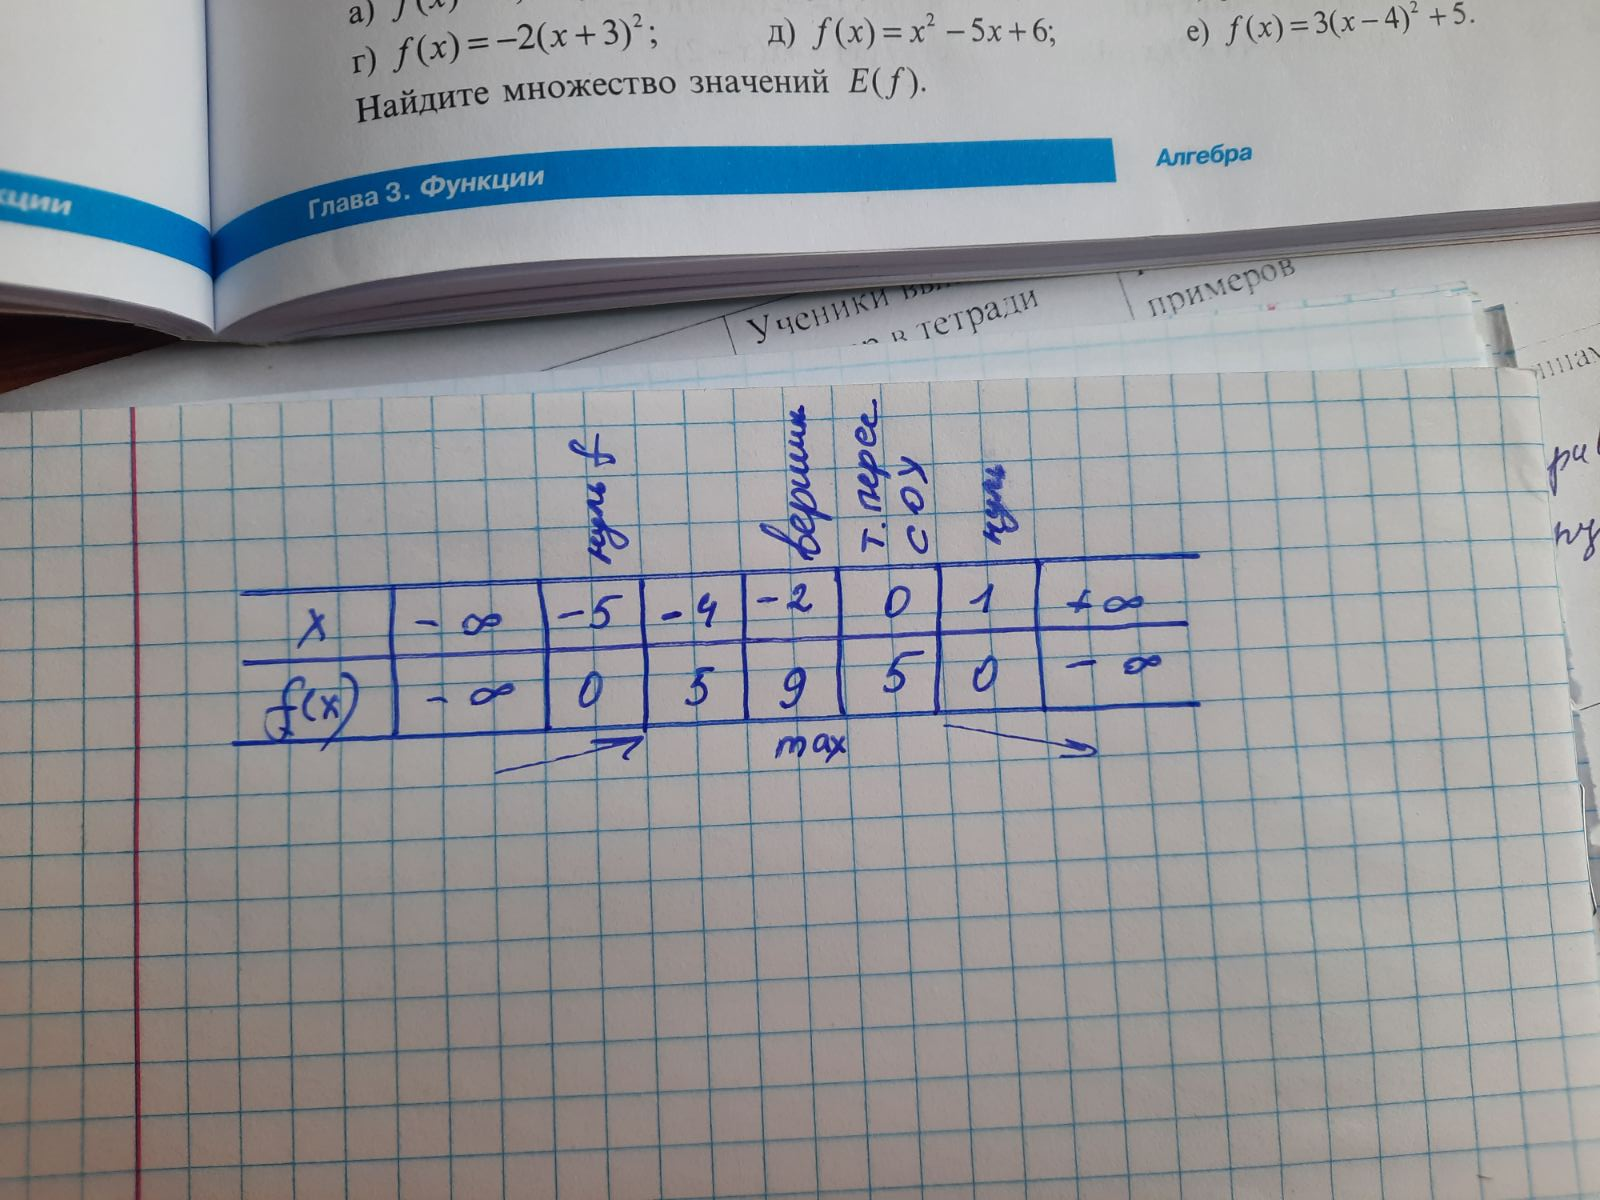 а) f(x)
г) f(x) = −2(x + 3)²; д) f(x) = x² − 5x + 6; е) f(x) = 3(x − 4)² + 5.
Найдите множество значений E(f).
кции
Глава 3. Функции
Алгебра
Ученики
в тетради
примеров
нуль f
вершин
т. перес
с OY
нуль
x | −∞ | −5 | −4 | −2 | 0 | 1 | +∞
f(x) | −∞ | 0 | 5 | 9 | 5 | 0 | −∞
max